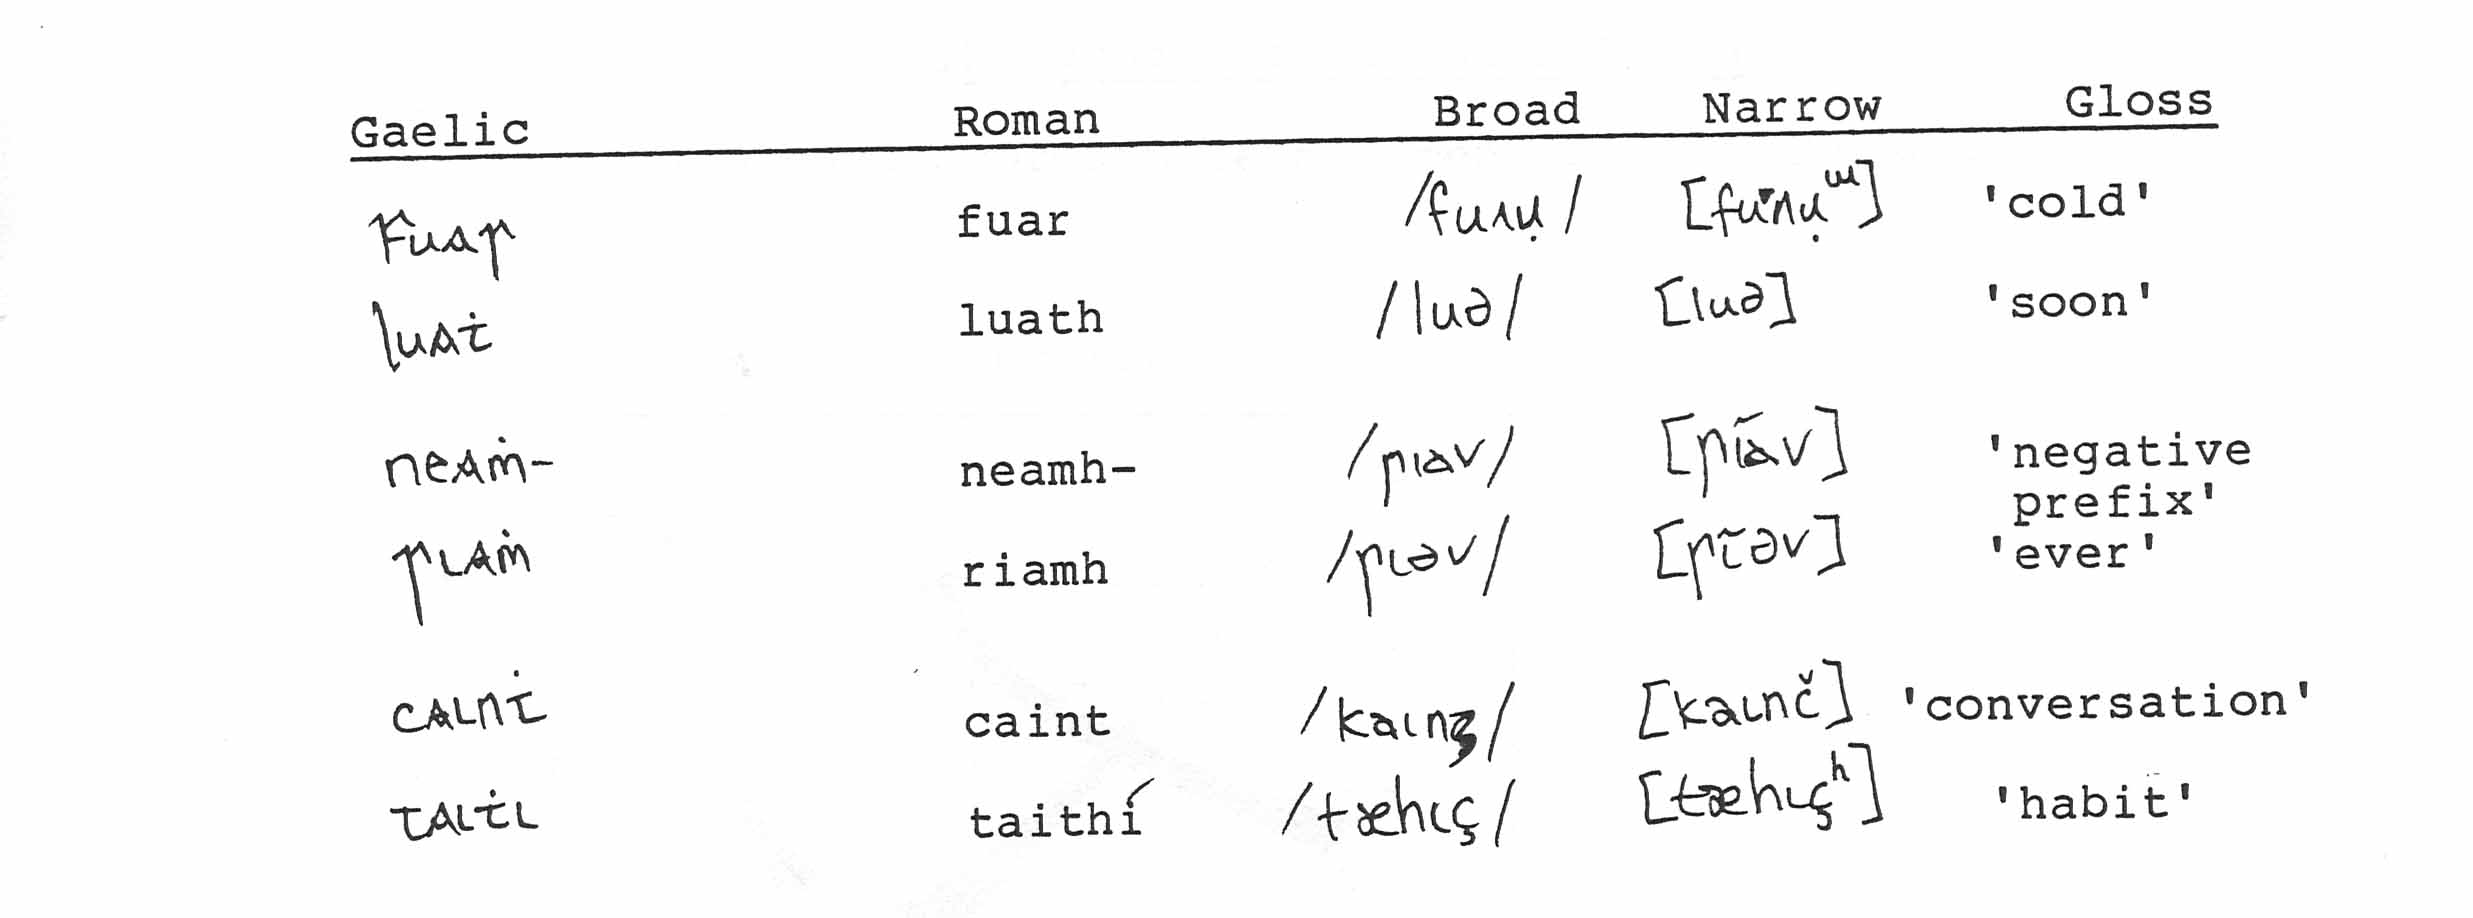 Gaelic Roman Broad Narrow Gloss
fuaꞃ fuar /fuʌṛ/ 'cold'
luaṫ luath /luə/ [luə] 'soon'
neaṁ- neamh- /ɲıav/ [ɲĩav] 'negative
prefix'
ꞃıaṁ riamh /ɲıəv/ [ɲĩəv] 'ever'
caınṫ caint [kaınč] 'conversation'
taıṫı taithí /tæhıç/ [tæhıçʰ] 'habit'